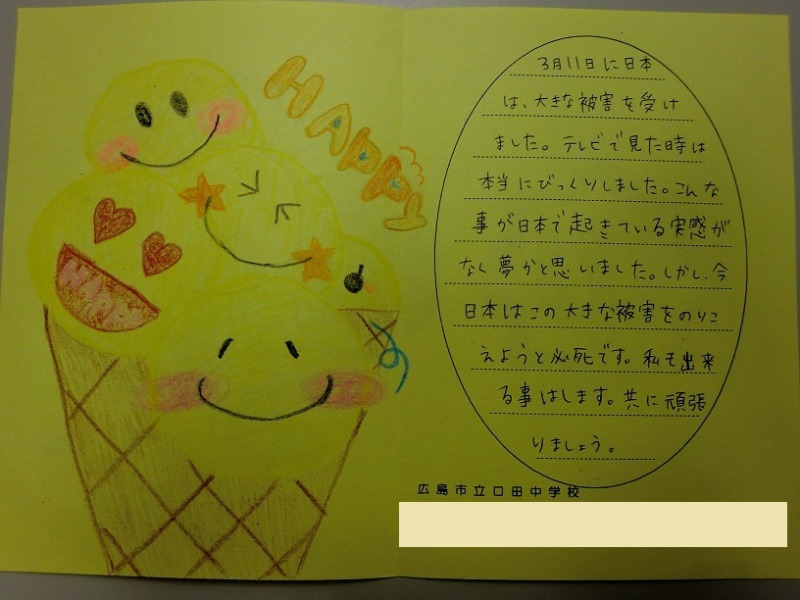 HAPPY
3月11日に日本
は、大きな被害を受け
ました。テレビで見た時は
本当にびっくりしました。こんな
事が日本で起きている実感が
なく夢かと思いました。しかし、今
日本はこの大きな被害をのりこ
えようと必死です。私も出来
る事はします。共に頑張
りましょう。
広島市立口田中学校